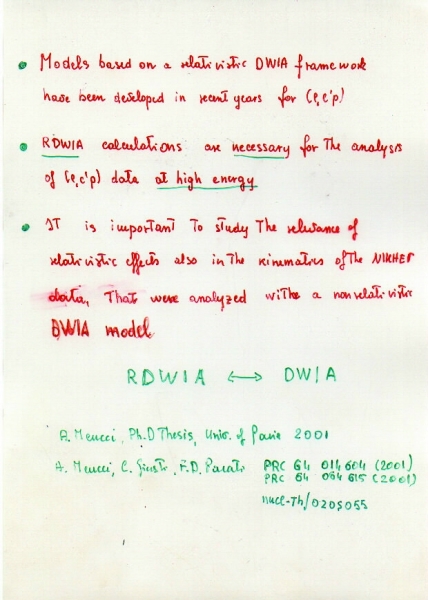 • Models based on a relativistic DWIA framework
have been developed in recent years for (e,e'p)
• RDWIA calculations are necessary for the analysis
of (e,e'p) data at high energy
• IT is important to study the relevance of
relativistic effects also in the kinematics of the NIKHEF
data, that were analyzed with a nonrelativistic
DWIA model
RDWIA ⟷ DWIA
A. Meucci, Ph.D Thesis, Univ. of Pavia 2001
A. Meucci, C. Giusti, F.D. Pacati PRC 64 014604 (2001)
PRC 64 064615 (2001)
nucl-th/0205055